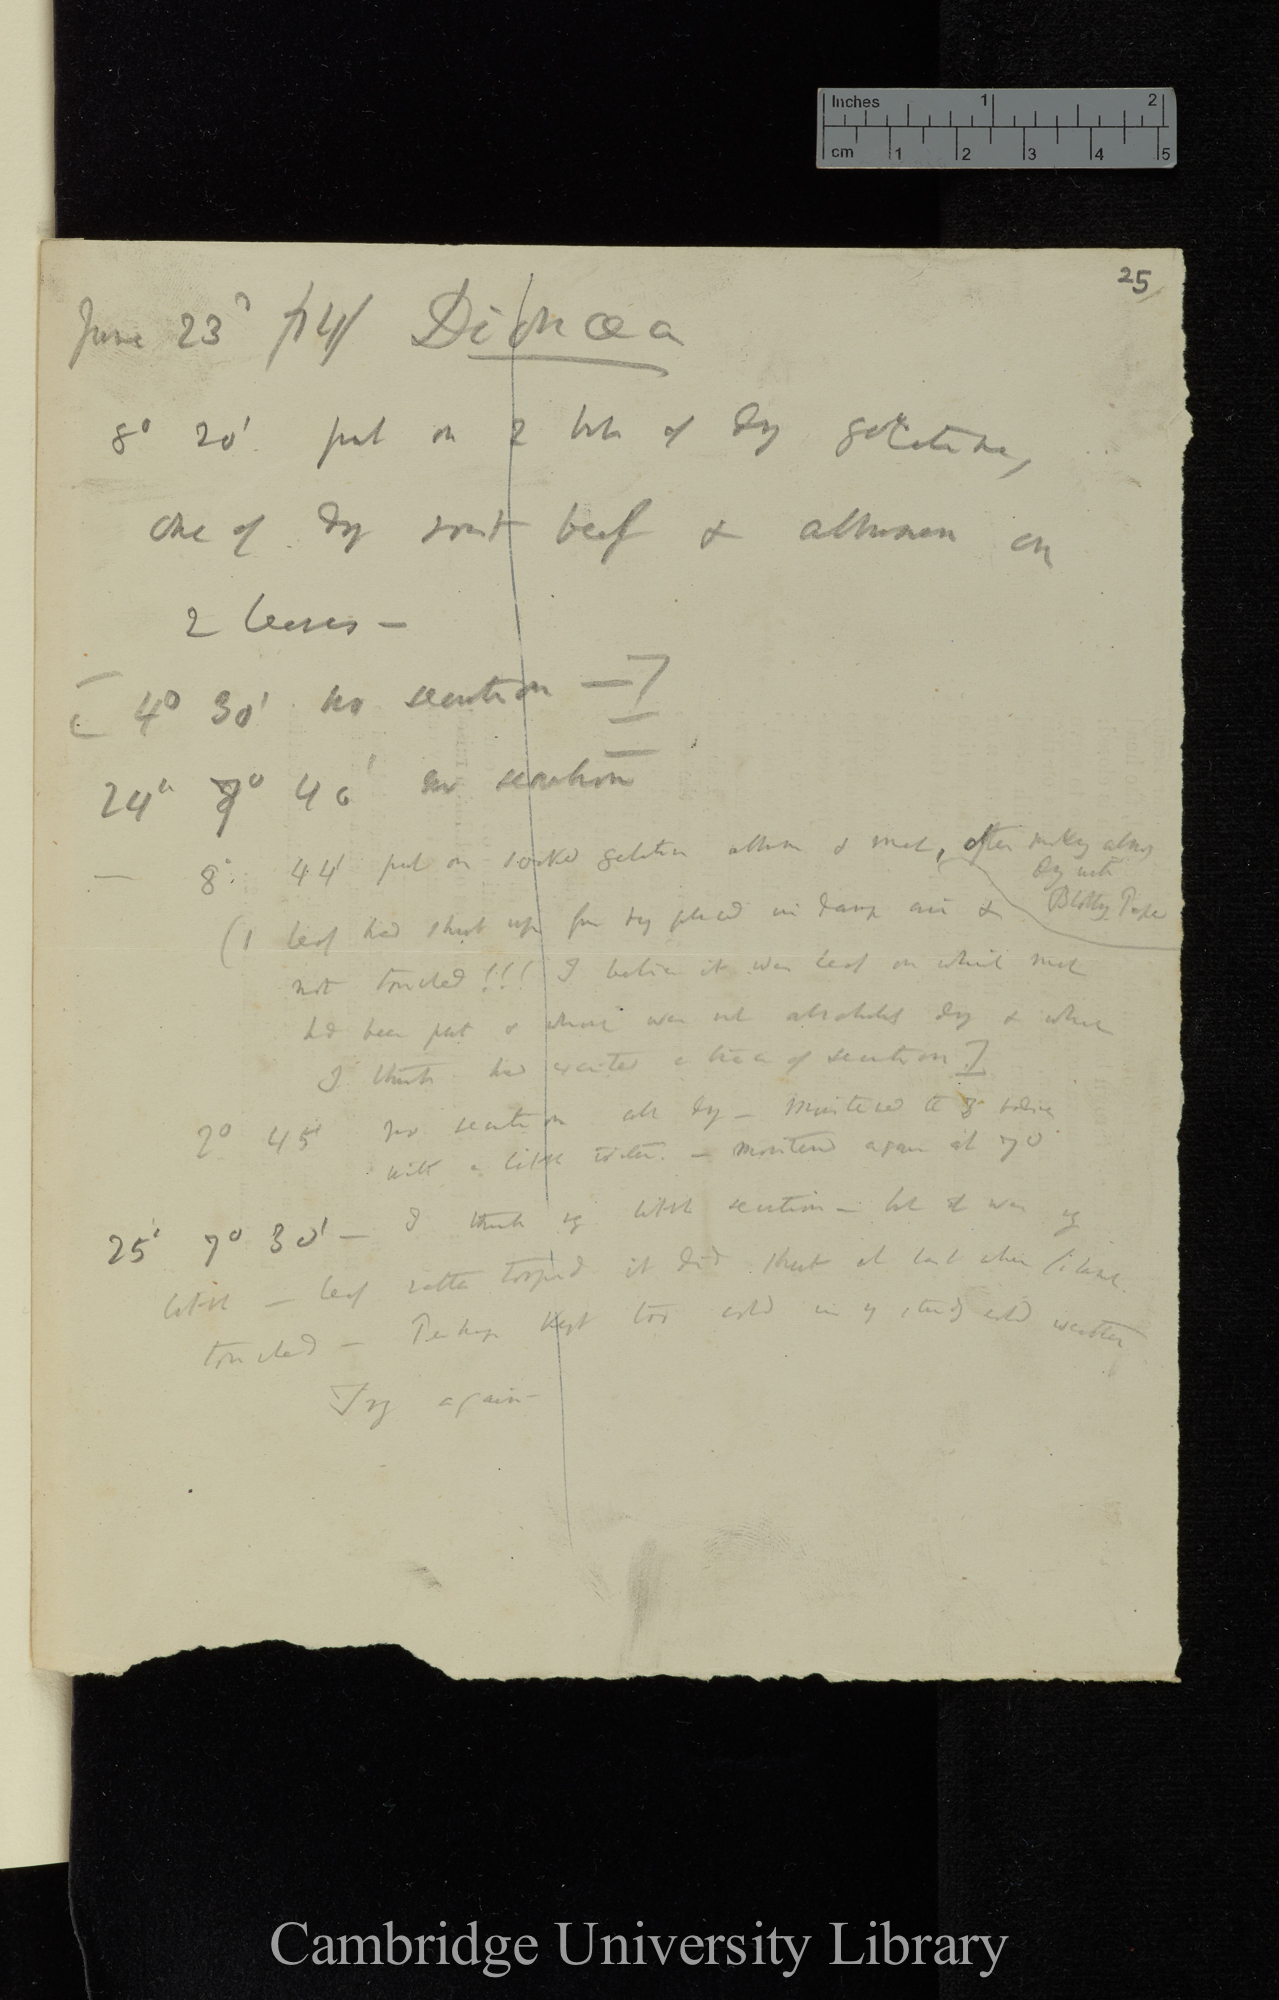 25
June 23d /74/ Dionæa
8° 20' put on 2 bits of dry gelatine,
one of dry roast beef & albumen on
2 leaves —
[ 4° 30' no secretion — ]
24th 7° 40' no secretion
— 8° 44' put on soaked gelatine album & meat, after making almost
dry with
Blotting Paper
(1 leaf had shut up from being placed in damp air &
not touched!!! I believe it was leaf on which meat
had been put & which was not absolutely dry & which
I think had excited a trace of secretion]
2° 45' no secretion all dry — Moistened the 3
with a little water. — Moistened again at 7°
25th 7° 30' — I think vy little secretion — but it was vy
little — leaf rather torpid it did shut at last when
touched — Perhaps kept too cold in my study cold weather
Try again —
Inches 1 2
cm 1 2 3 4 5
Cambridge University Library